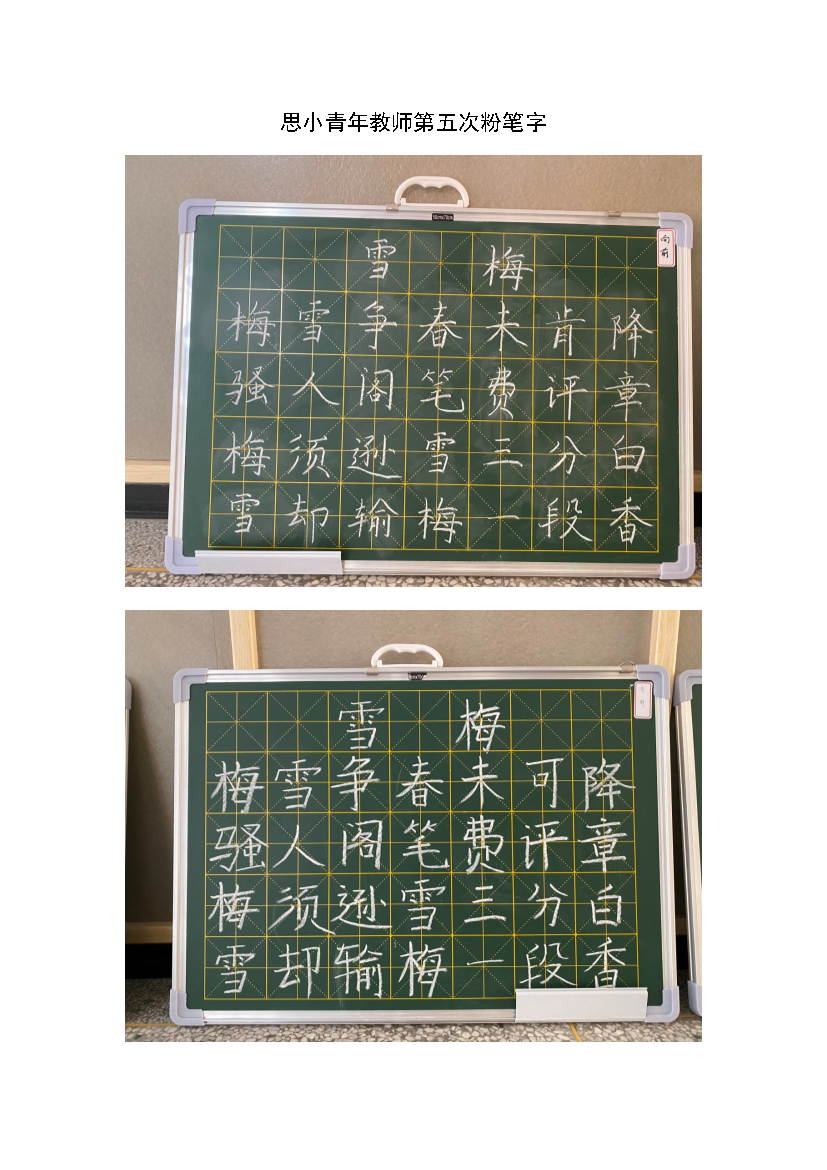 思小青年教师第五次粉笔字
50cmx70cm
向前
雪梅
梅雪争春未肯降
骚人阁笔费评章
梅须逊雪三分白
雪却输梅一段香
雪梅
梅雪争春未可降
骚人阁笔费评章
梅须逊雪三分白
雪却输梅一段香